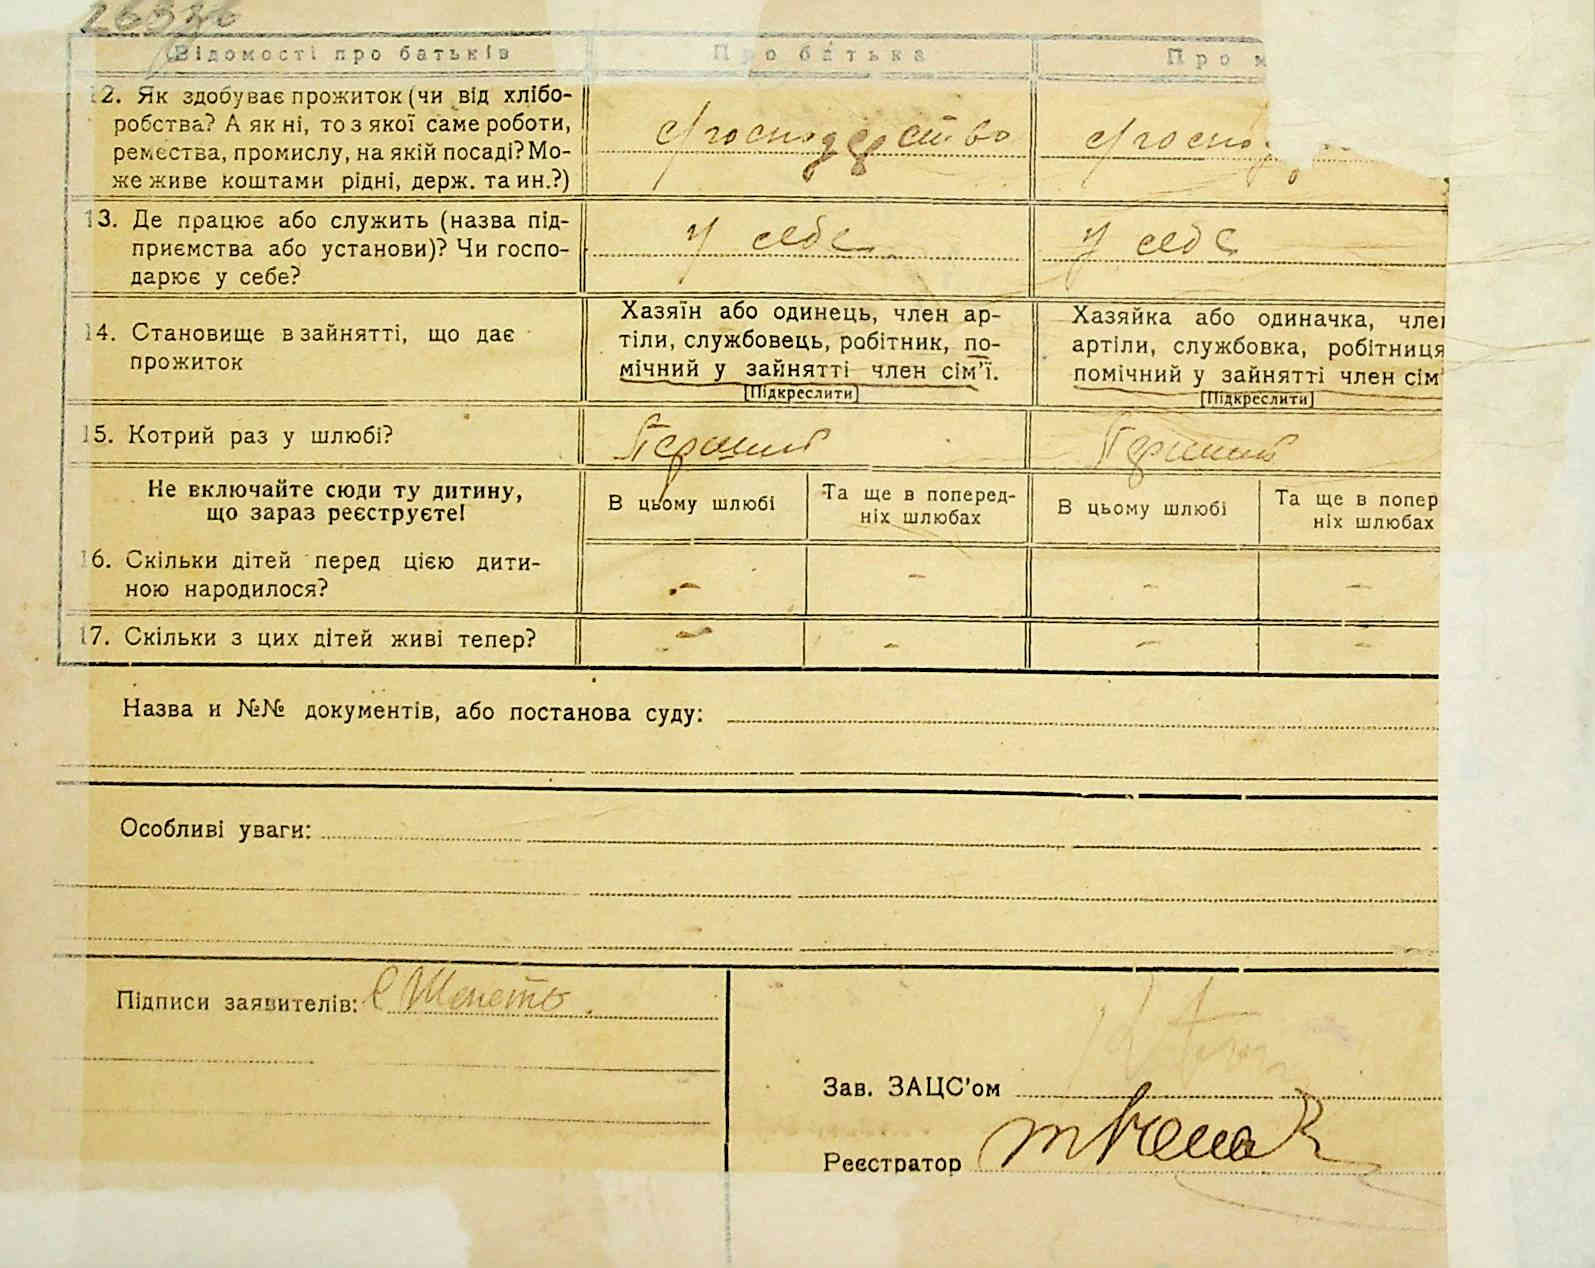 Відомості про батьків Про батька Про м
12. Як здобуває прожиток (чи від хлібо-
робства? А як ні, то з якої саме роботи,
ремества, промислу, на якій посаді? Мо-
же живе коштами рідні, держ. та ин.?)
с/господарство с/госпо
13. Де працює або служить (назва під-
приємства або установи)? Чи госпо-
дарює у себе?
у себе у себе
14. Становище в зайнятті, що дає
прожиток
Хазяїн або одинець, член ар-
тіли, службовець, робітник, по-
мічний у зайнятті член сім'ї.
[Підкреслити]
Хазяйка або одиначка, член
артіли, службовка, робітниця
помічний у зайнятті член сім'
[Підкреслити]
15. Котрий раз у шлюбі? Перший Перший
Не включайте сюди ту дитину,
що зараз реєструєте!
В цьому шлюбі
Та ще в поперед-
ніх шлюбах
В цьому шлюбі
Та ще в попер
ніх шлюбах
16. Скільки дітей перед цією дити-
ною народилося?
- - - -
17. Скільки з цих дітей живі тепер? - - - -
Назва и №№ документів, або постанова суду:
Особливі уваги:
Підписи заявителів:
Зав. ЗАЦС'ом
Реєстратор